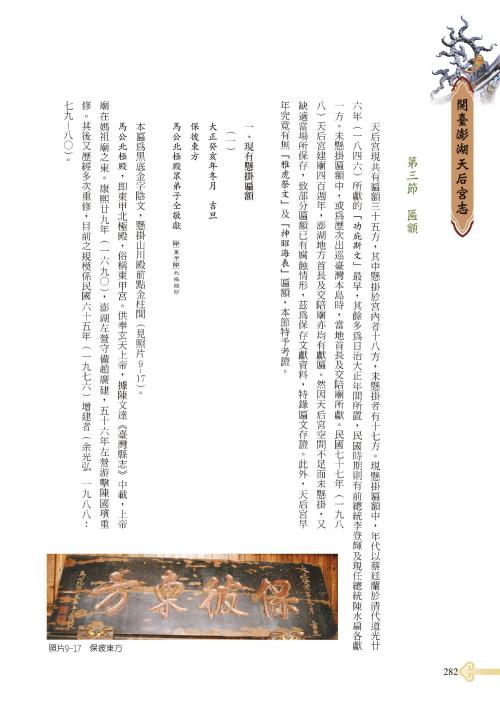 開臺澎湖天后宮志
第三節　匾額
天后宮現共有匾額三十五方，其中懸掛於宮內者十八方，未懸掛者有十七方。現懸掛匾額中，年代以蔡廷蘭於清代道光廿
六年（一八四六）所獻的「功庇斯文」最早，其餘多為日治大正年間所置，民國時期則有前總統李登輝及現任總統陳水扁各獻
一方。未懸掛匾額中，或為歷次出巡臺灣本島時，當地首長及交陪廟所獻。民國七十七年（一九八
八）天后宮建廟四百週年，澎湖地方首長及交陪廟亦均有獻匾。然因天后宮空間不足而未懸掛，又
缺適當場所保存，致部分匾額已有腐蝕情形，茲為保存文獻資料，特錄匾文存證。此外，天后宮早
年究竟有無「雅虎祭文」及「神昭海表」匾額，本節特予考證。
一、現有懸掛匾額
（一）
大正癸亥年冬月　吉旦
保彼東方
馬公北極殿眾弟子仝敬獻
本匾為黑底金字陰文，懸掛山川殿前點金柱間（見照片9-17）。
馬公北極殿，即東甲北極殿，俗稱東甲宮。供奉玄天上帝，據陳文達《臺灣縣志》中載，上帝
廟在媽祖廟之東。康熙廿九年（一六九〇），澎湖左營守備趙廣建，五十六年左營游擊陳國璸重
修。其後又歷經多次重修，目前之規模係民國六十五年（一九七六）增建者（余光弘　一九八八：
七九－八〇）。
保彼東方
照片9-17　保彼東方
282